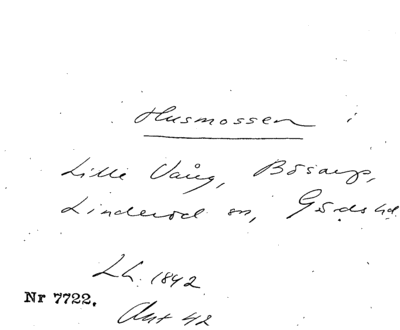 Husmossen i
Lille Vång, Bosarp,
Linderöd sn, Gärds hd.
LL. 1842
Nr 7722.
Akt 42